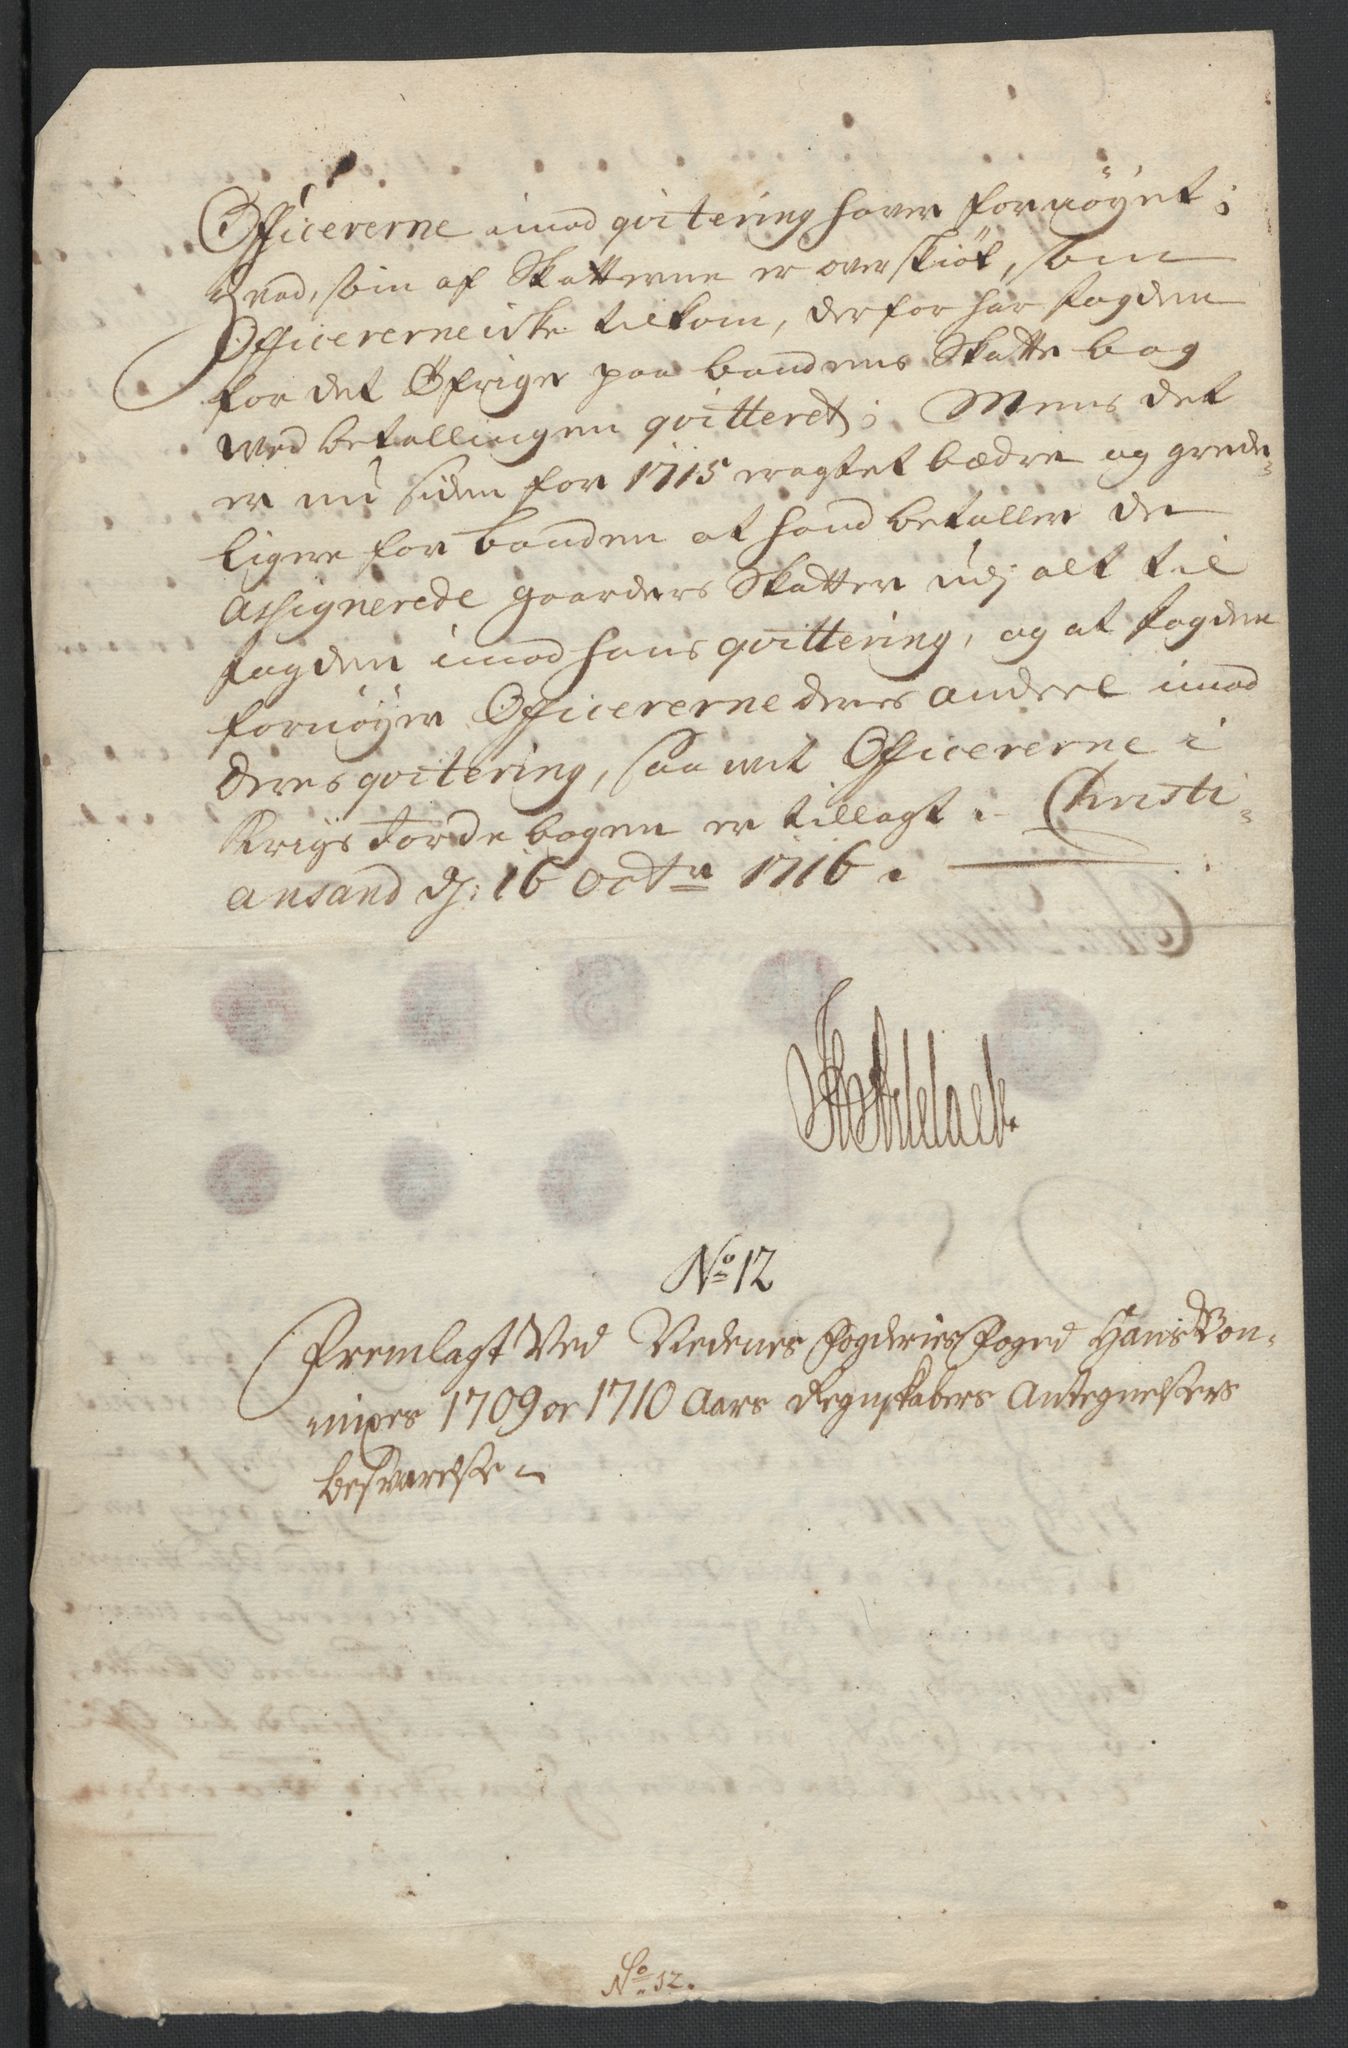 Officererne imod qvitering haver fornöyet;
hvad, som af Skatterne er overskiöt, som
Officererne icke tilkom, derfor har fogden
for det Öfrige paa bondens Skatte bog
wed betallingen qvitteret; Mens det
er nu siden for 1715 eragtet bædre og grede-
ligere for bonden at hand betaller de
Assignerede gaarders Skatter udj alt til
fogden imod hans qvittering, og at fogden
fornöyer Officererne deres andeel imod
deres qvitering, saa wit Officererne i
Krigs Jorde bogen er tillagt. Christi-
ansand dj: 16 Octr 1716.
No 12
Fremlagt Ved Nedenes Fogderies Foged Hans
1709 oc 1710 Aars Regnskabers Antegnelsers
besvarelse
No 12.